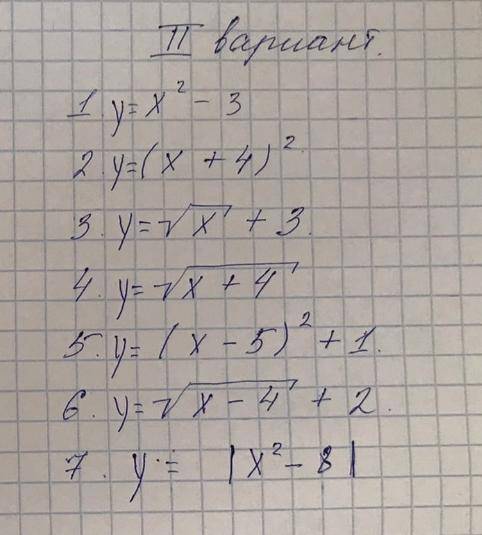 II вариант.
1. y = x² - 3
2. y = (x + 4)²
3. y = √x + 3.
4. y = √(x + 4)
5. y = (x - 5)² + 1.
6. y = √(x - 4) + 2.
7. y = |x² - 8|